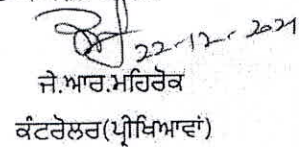 22-12-2021
ਜੇ.ਆਰ.ਮਹਿਰੋਕ
ਕੰਟਰੋਲਰ(ਪ੍ਰੀਖਿਆਵਾਂ)